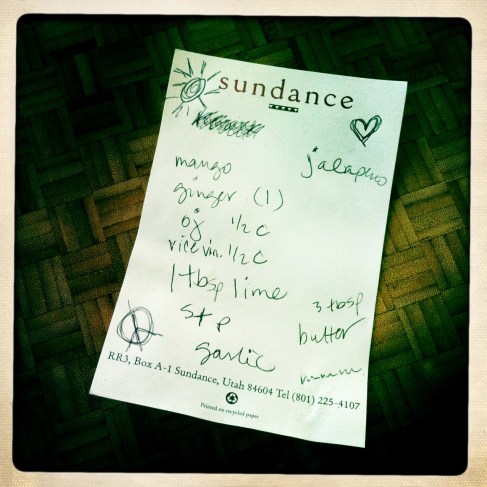 sundance
mango
jalapeno
ginger (1)
oj 1/2 C
rice vin. 1/2 C
1 tbsp lime
3 tbsp
s + p
butter
garlic
RR3, Box A-1 Sundance, Utah 84604 Tel (801) 225-4107
Printed on recycled paper